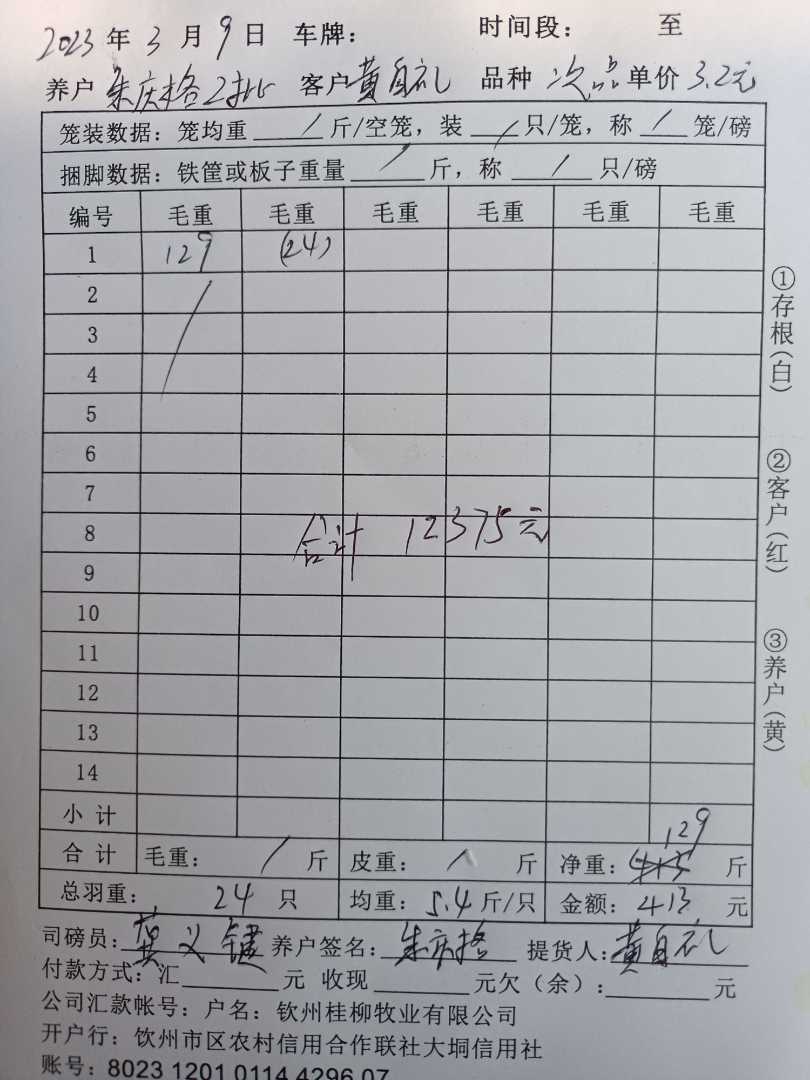 2023 年 3 月 9 日 车牌： 时间段： 至
养户 朱庆格2批 客户 黄自礼 品种 次品 单价 3.2元
笼装数据：笼均重 / 斤/空笼，装 / 只/笼，称 / 笼/磅
捆脚数据：铁筐或板子重量 / 斤，称 / 只/磅
编号 毛重 毛重 毛重 毛重 毛重 毛重
1 129 (24)
2
3
4
5
6
7
8
合计 12375元
9
10
11
12
13
14
小 计
合 计 毛重： / 斤 皮重： / 斤 净重： 129 斤
总羽重： 24 只 均重： 5.4 斤/只 金额： 413 元
司磅员： 义键 养户签名： 朱庆格 提货人： 黄自礼
付款方式：汇 元 收现 元欠（余）： 元
公司汇款帐号：户名：钦州桂柳牧业有限公司
开户行：钦州市区农村信用合作联社大垌信用社
账号：8023 1201 0114 4296 07
①存根（白）
②客户（红）
③养户（黄）